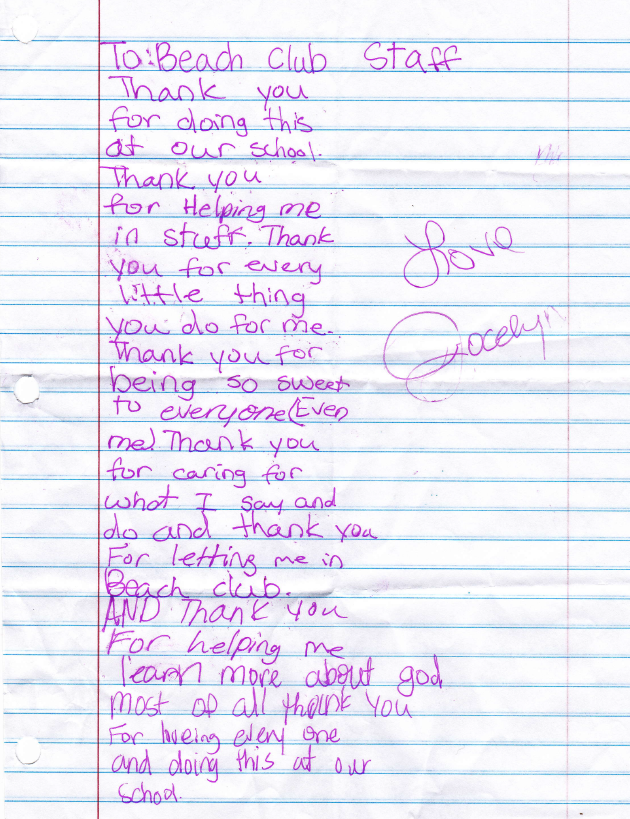 To: Beach Club Staff
Thank you
for doing this
at our school.
Thank you
for Helping me
in stuff. Thank
you for every
little thing
you do for me.
Thank you for
being so sweet
to everyone (Even
me) Thank you
for caring for
what I say and
do and thank you
For letting me in
Beach club.
AND Thank you
For helping me
learn more about god
most of all thank you
For every one
and doing this at our
school.
Love
Jocelyn